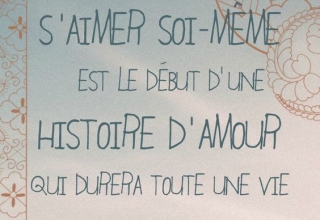 S'AIMER SOI-MÊME
EST LE DÉBUT D'UNE
HISTOIRE D'AMOUR
QUI DURERA TOUTE UNE VIE